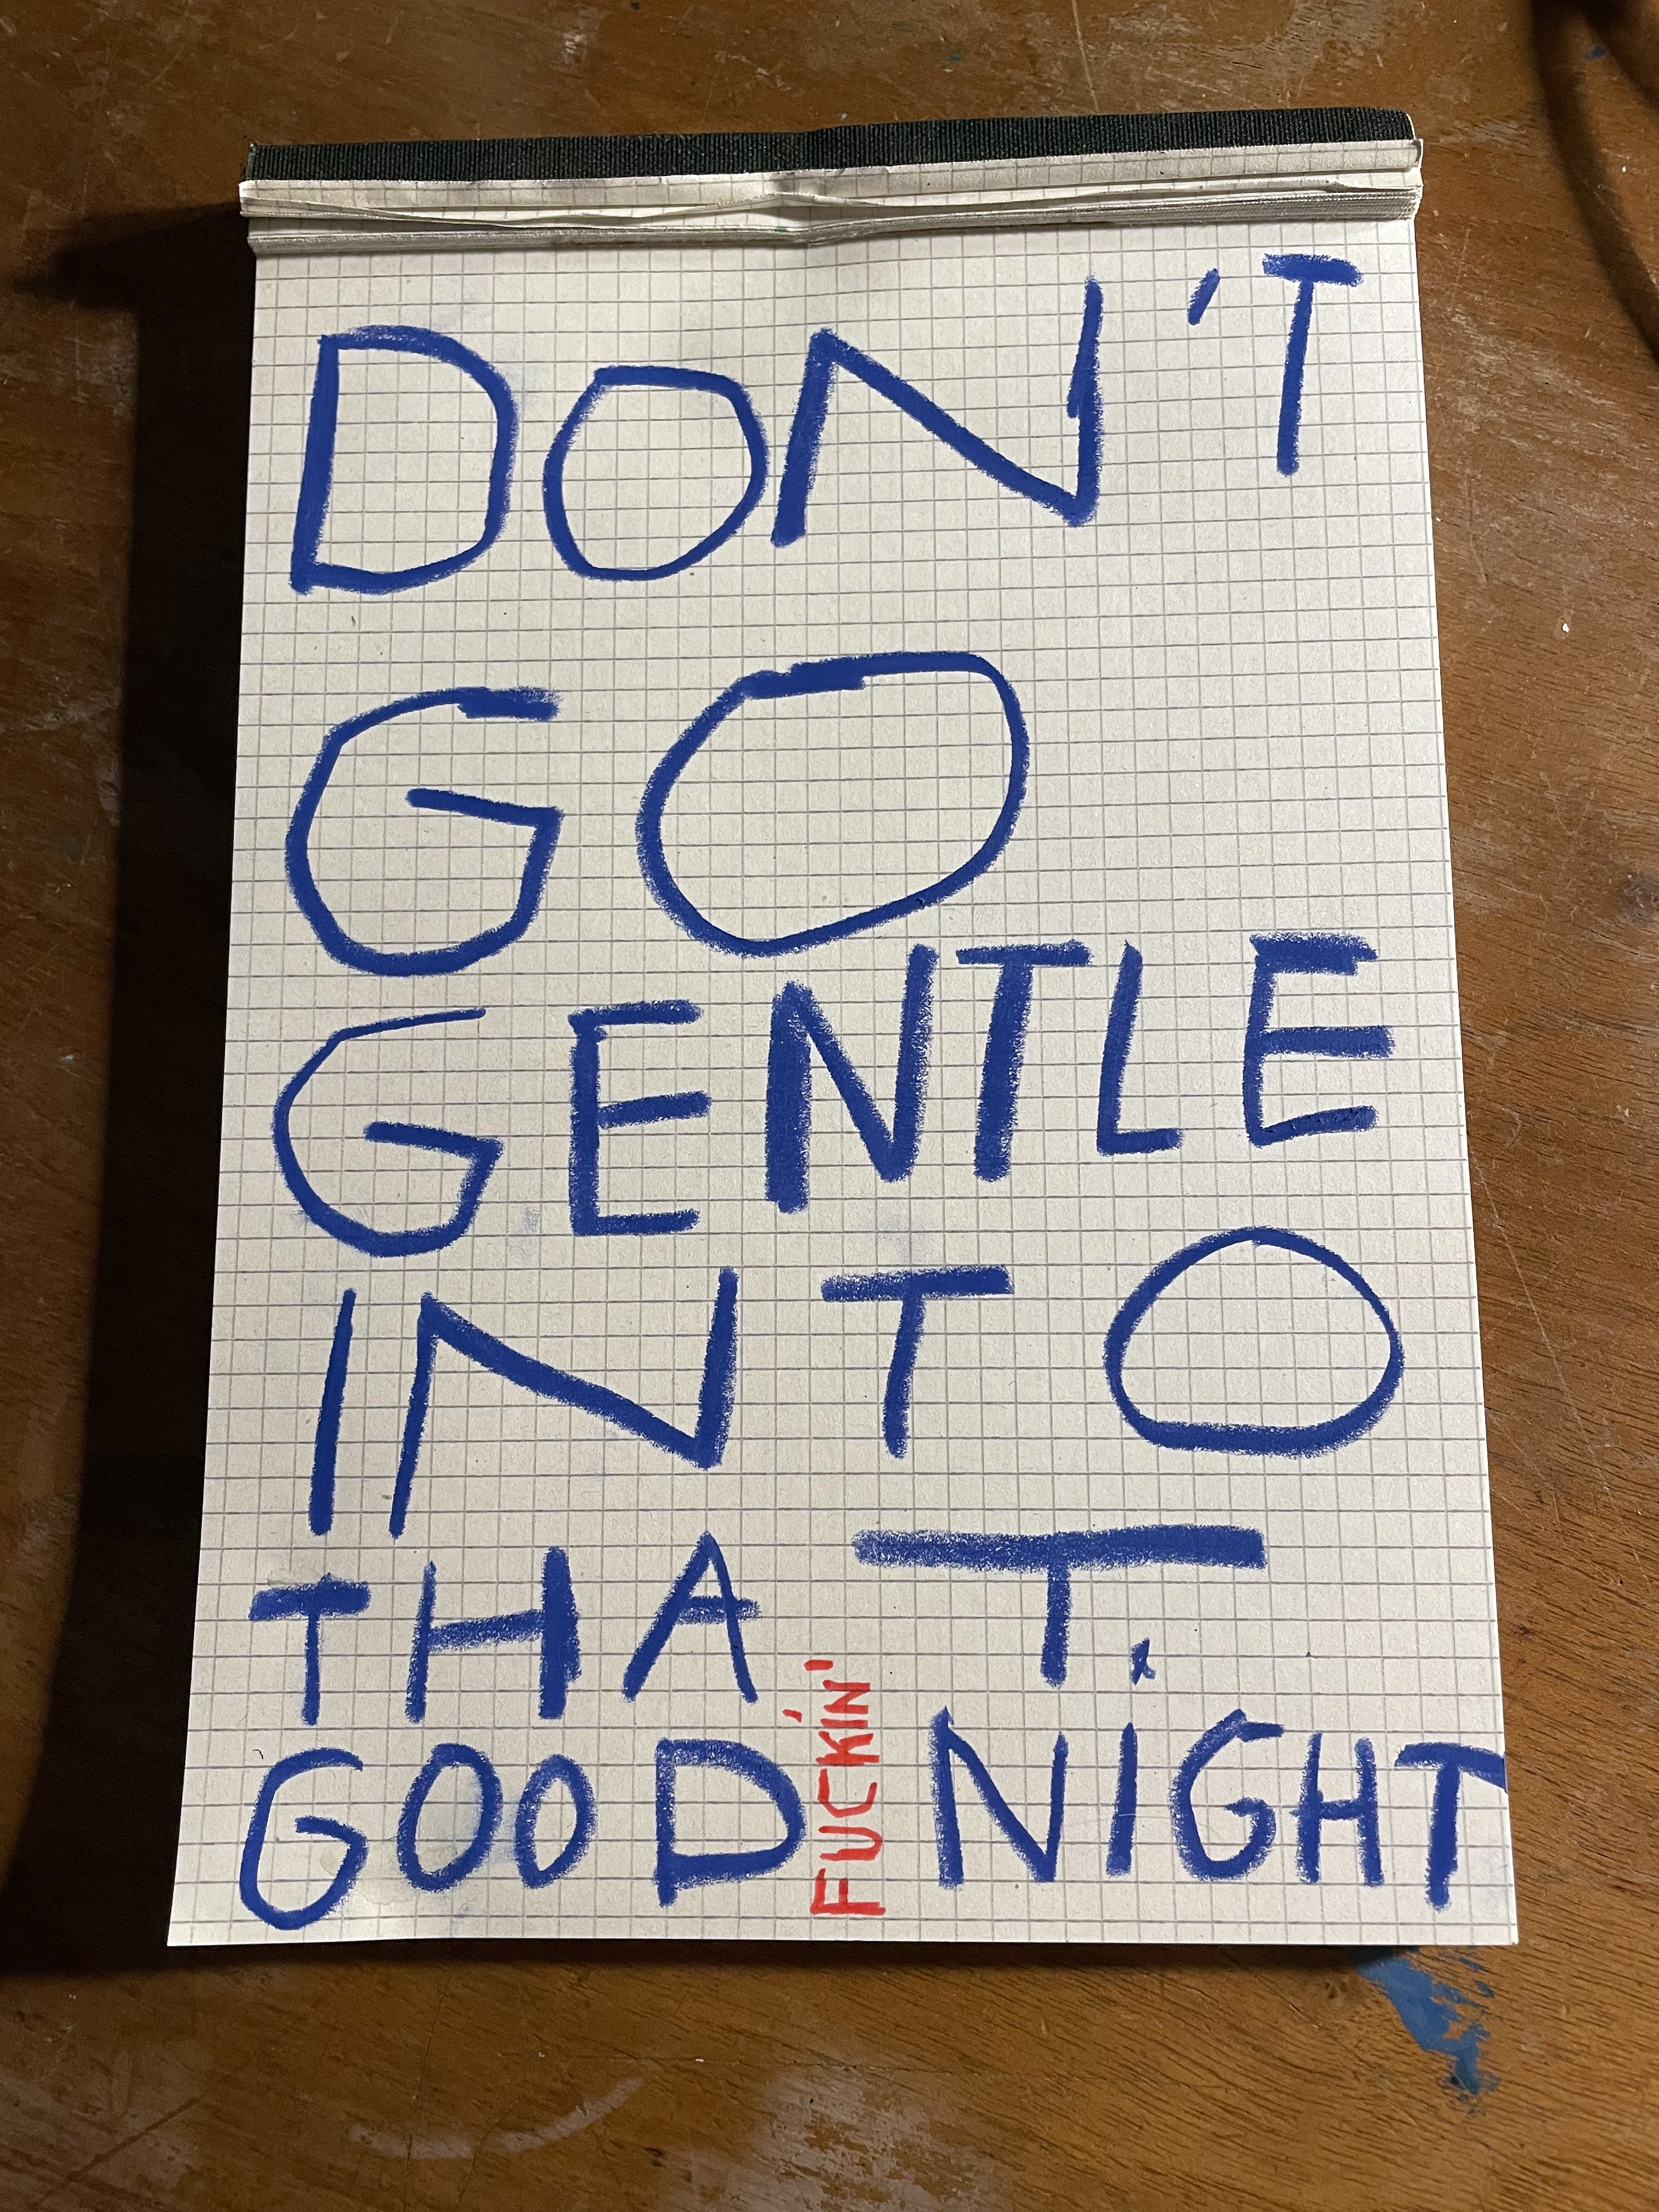 DON'T
GO
GENTLE
INTO
THAT.
GOOD FUCKIN' NIGHT